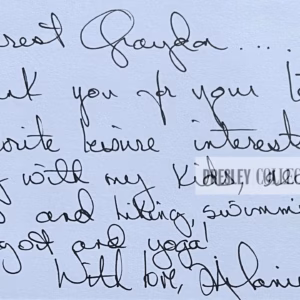 rest Graydon....
nk you for your le
orite leisure interests
g with my kids,
s and hiking, swimmi
golf and yoga!
With love, Melanie
PRESLEY COLLEC